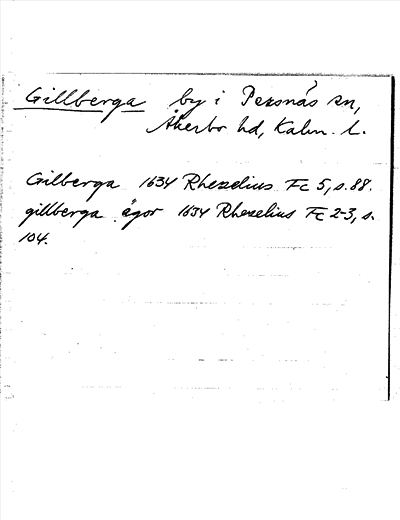 Gillberga by i Persnäs sn,
Åkerbo hd, Kalm. l.
Gilberga 1634 Rhezelius Fc 5, s. 88.
gillberga ägor 1634 Rhezelius Fc 2-3, s.
104.